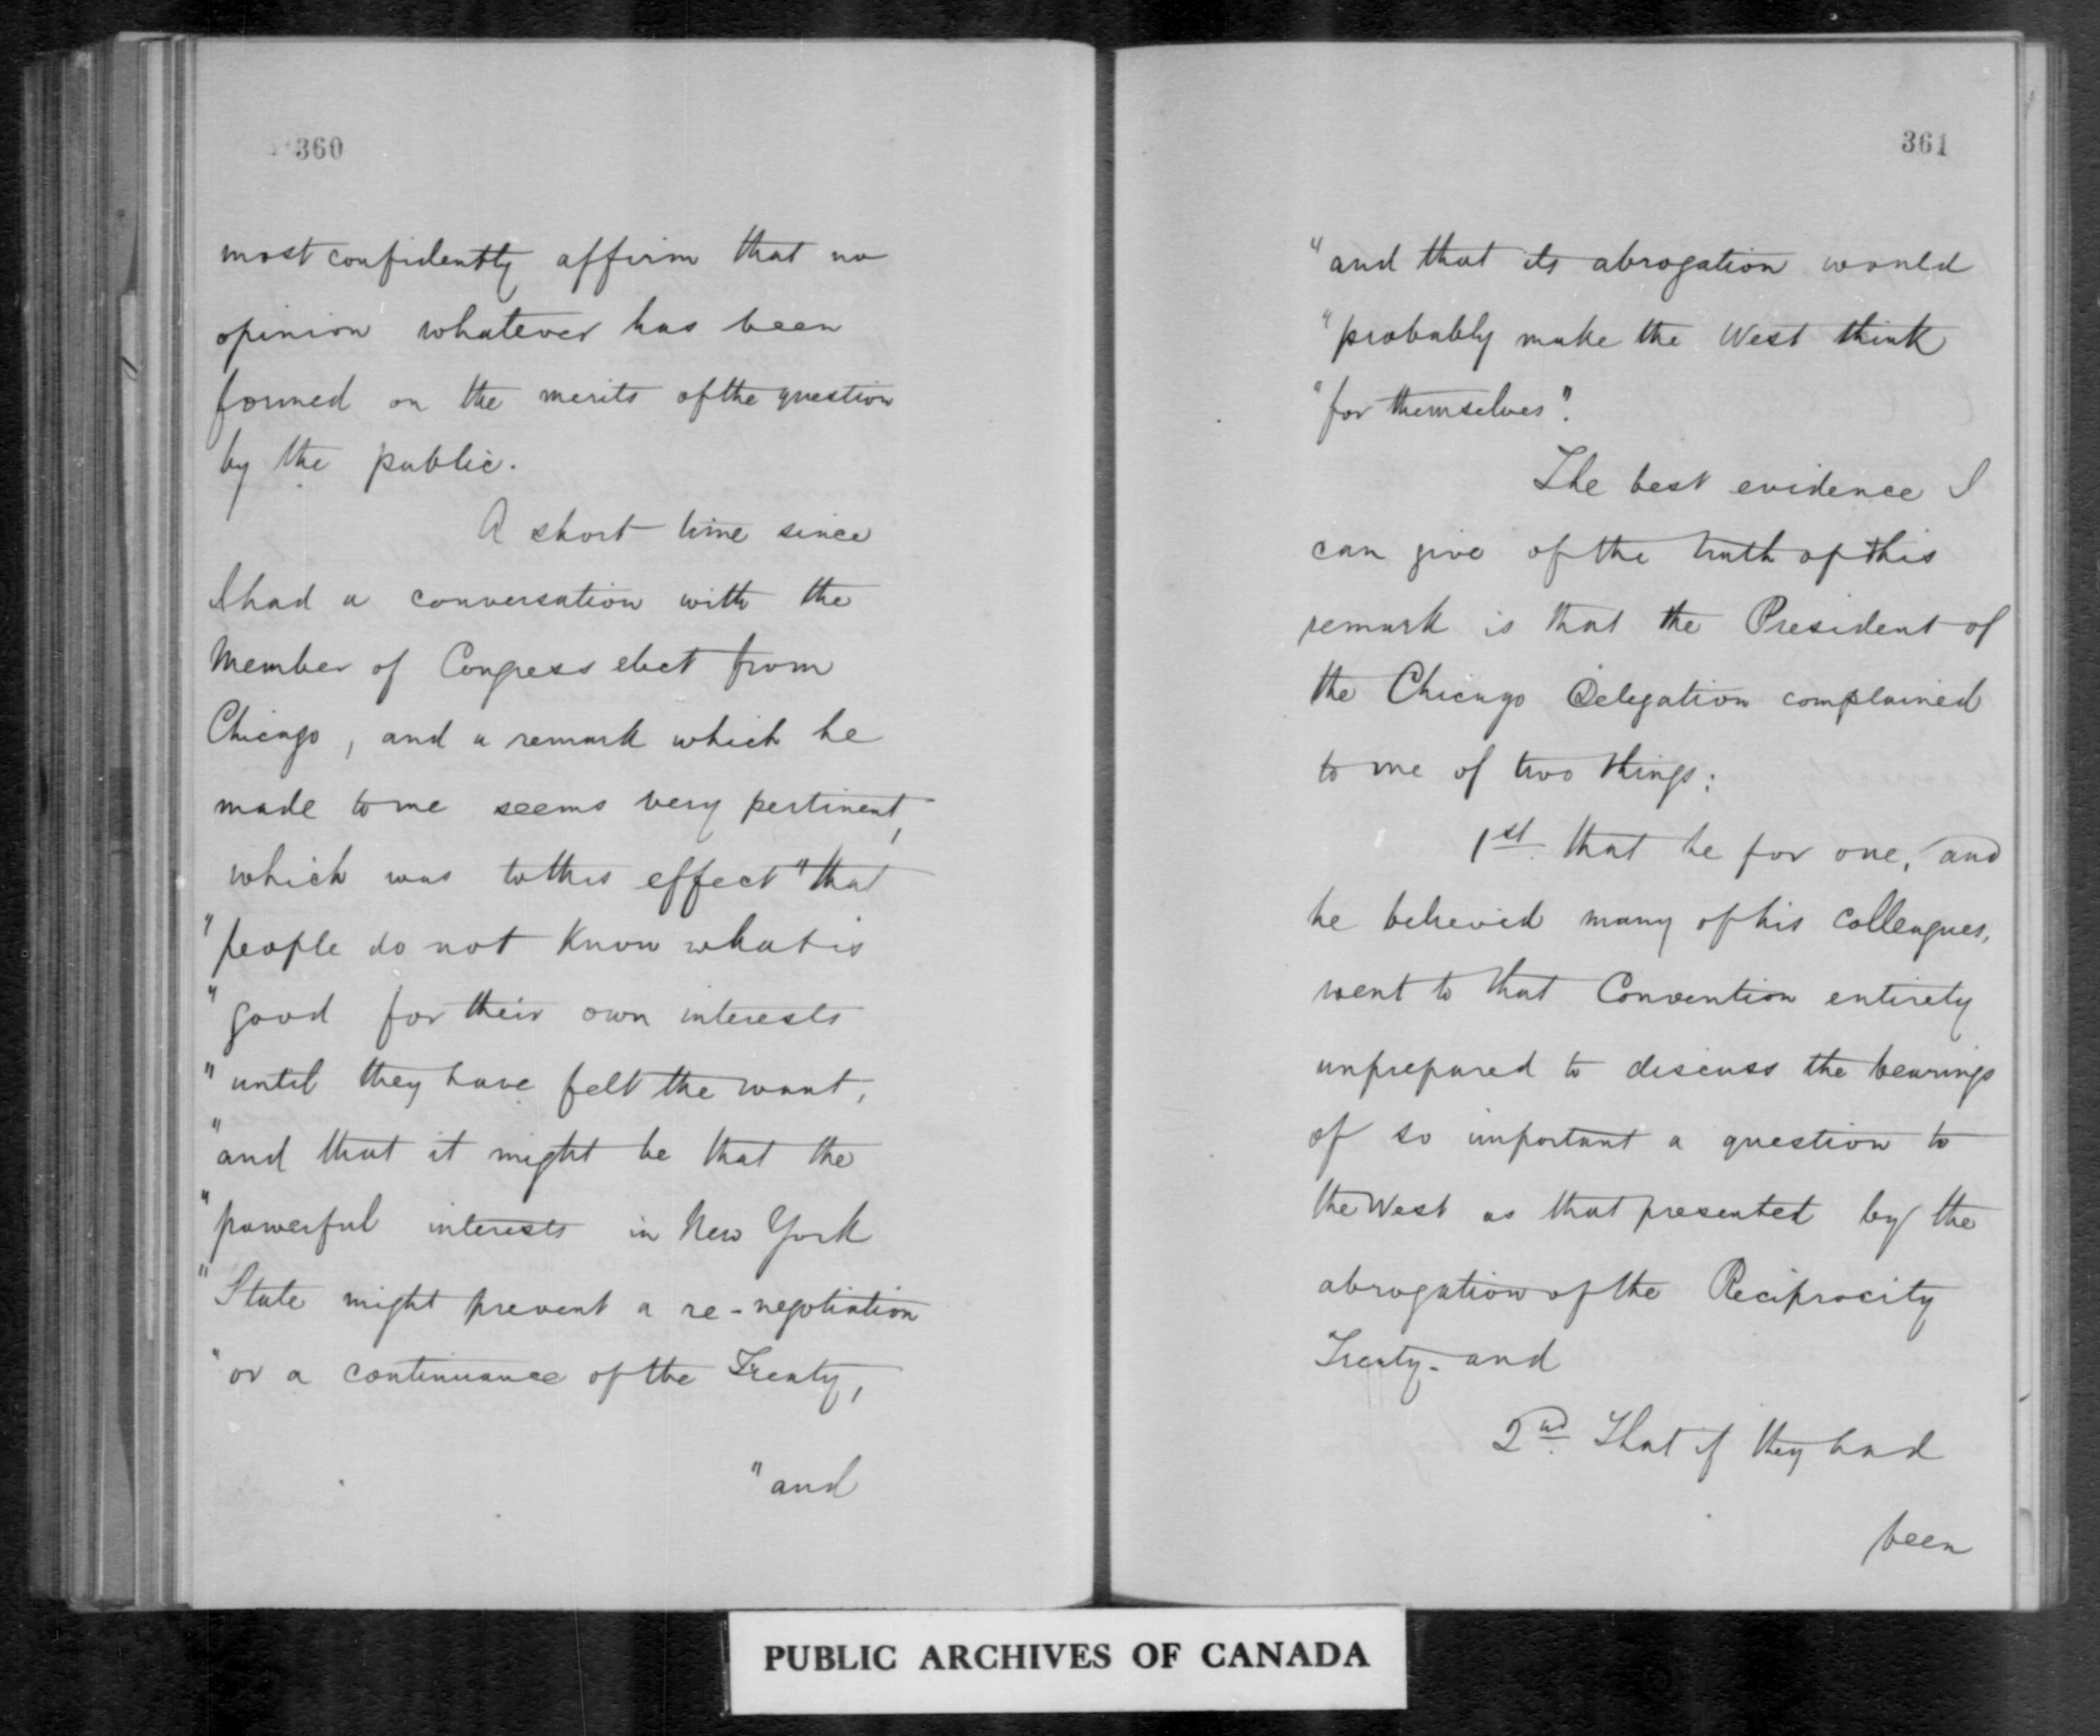 360
most confidently affirm that no
opinion whatever has been
formed on the merits of the question
by the public.
A short time since
I had a conversation with the
Member of Congress elect from
Chicago, and a remark which he
made to me seems very pertinent,
which was to this effect "that
"people do not know what is
"good for their own interests
"until they have felt the want,
"and that it might be that the
"powerful interests in New York
"State might prevent a re-negotiation
"or a continuance of the Treaty,
"and
361
"and that its abrogation would
"probably make the West think
"for themselves".
The best evidence I
can give of the truth of this
remark is that the President of
the Chicago Delegation complained
to me of two things:
1st. that he for one, and
he believed many of his colleagues,
went to that Convention entirely
unprepared to discuss the bearings
of so important a question to
the West as that presented by the
abrogation of the Reciprocity
Treaty- and
2nd. That if they had
been
PUBLIC ARCHIVES OF CANADA